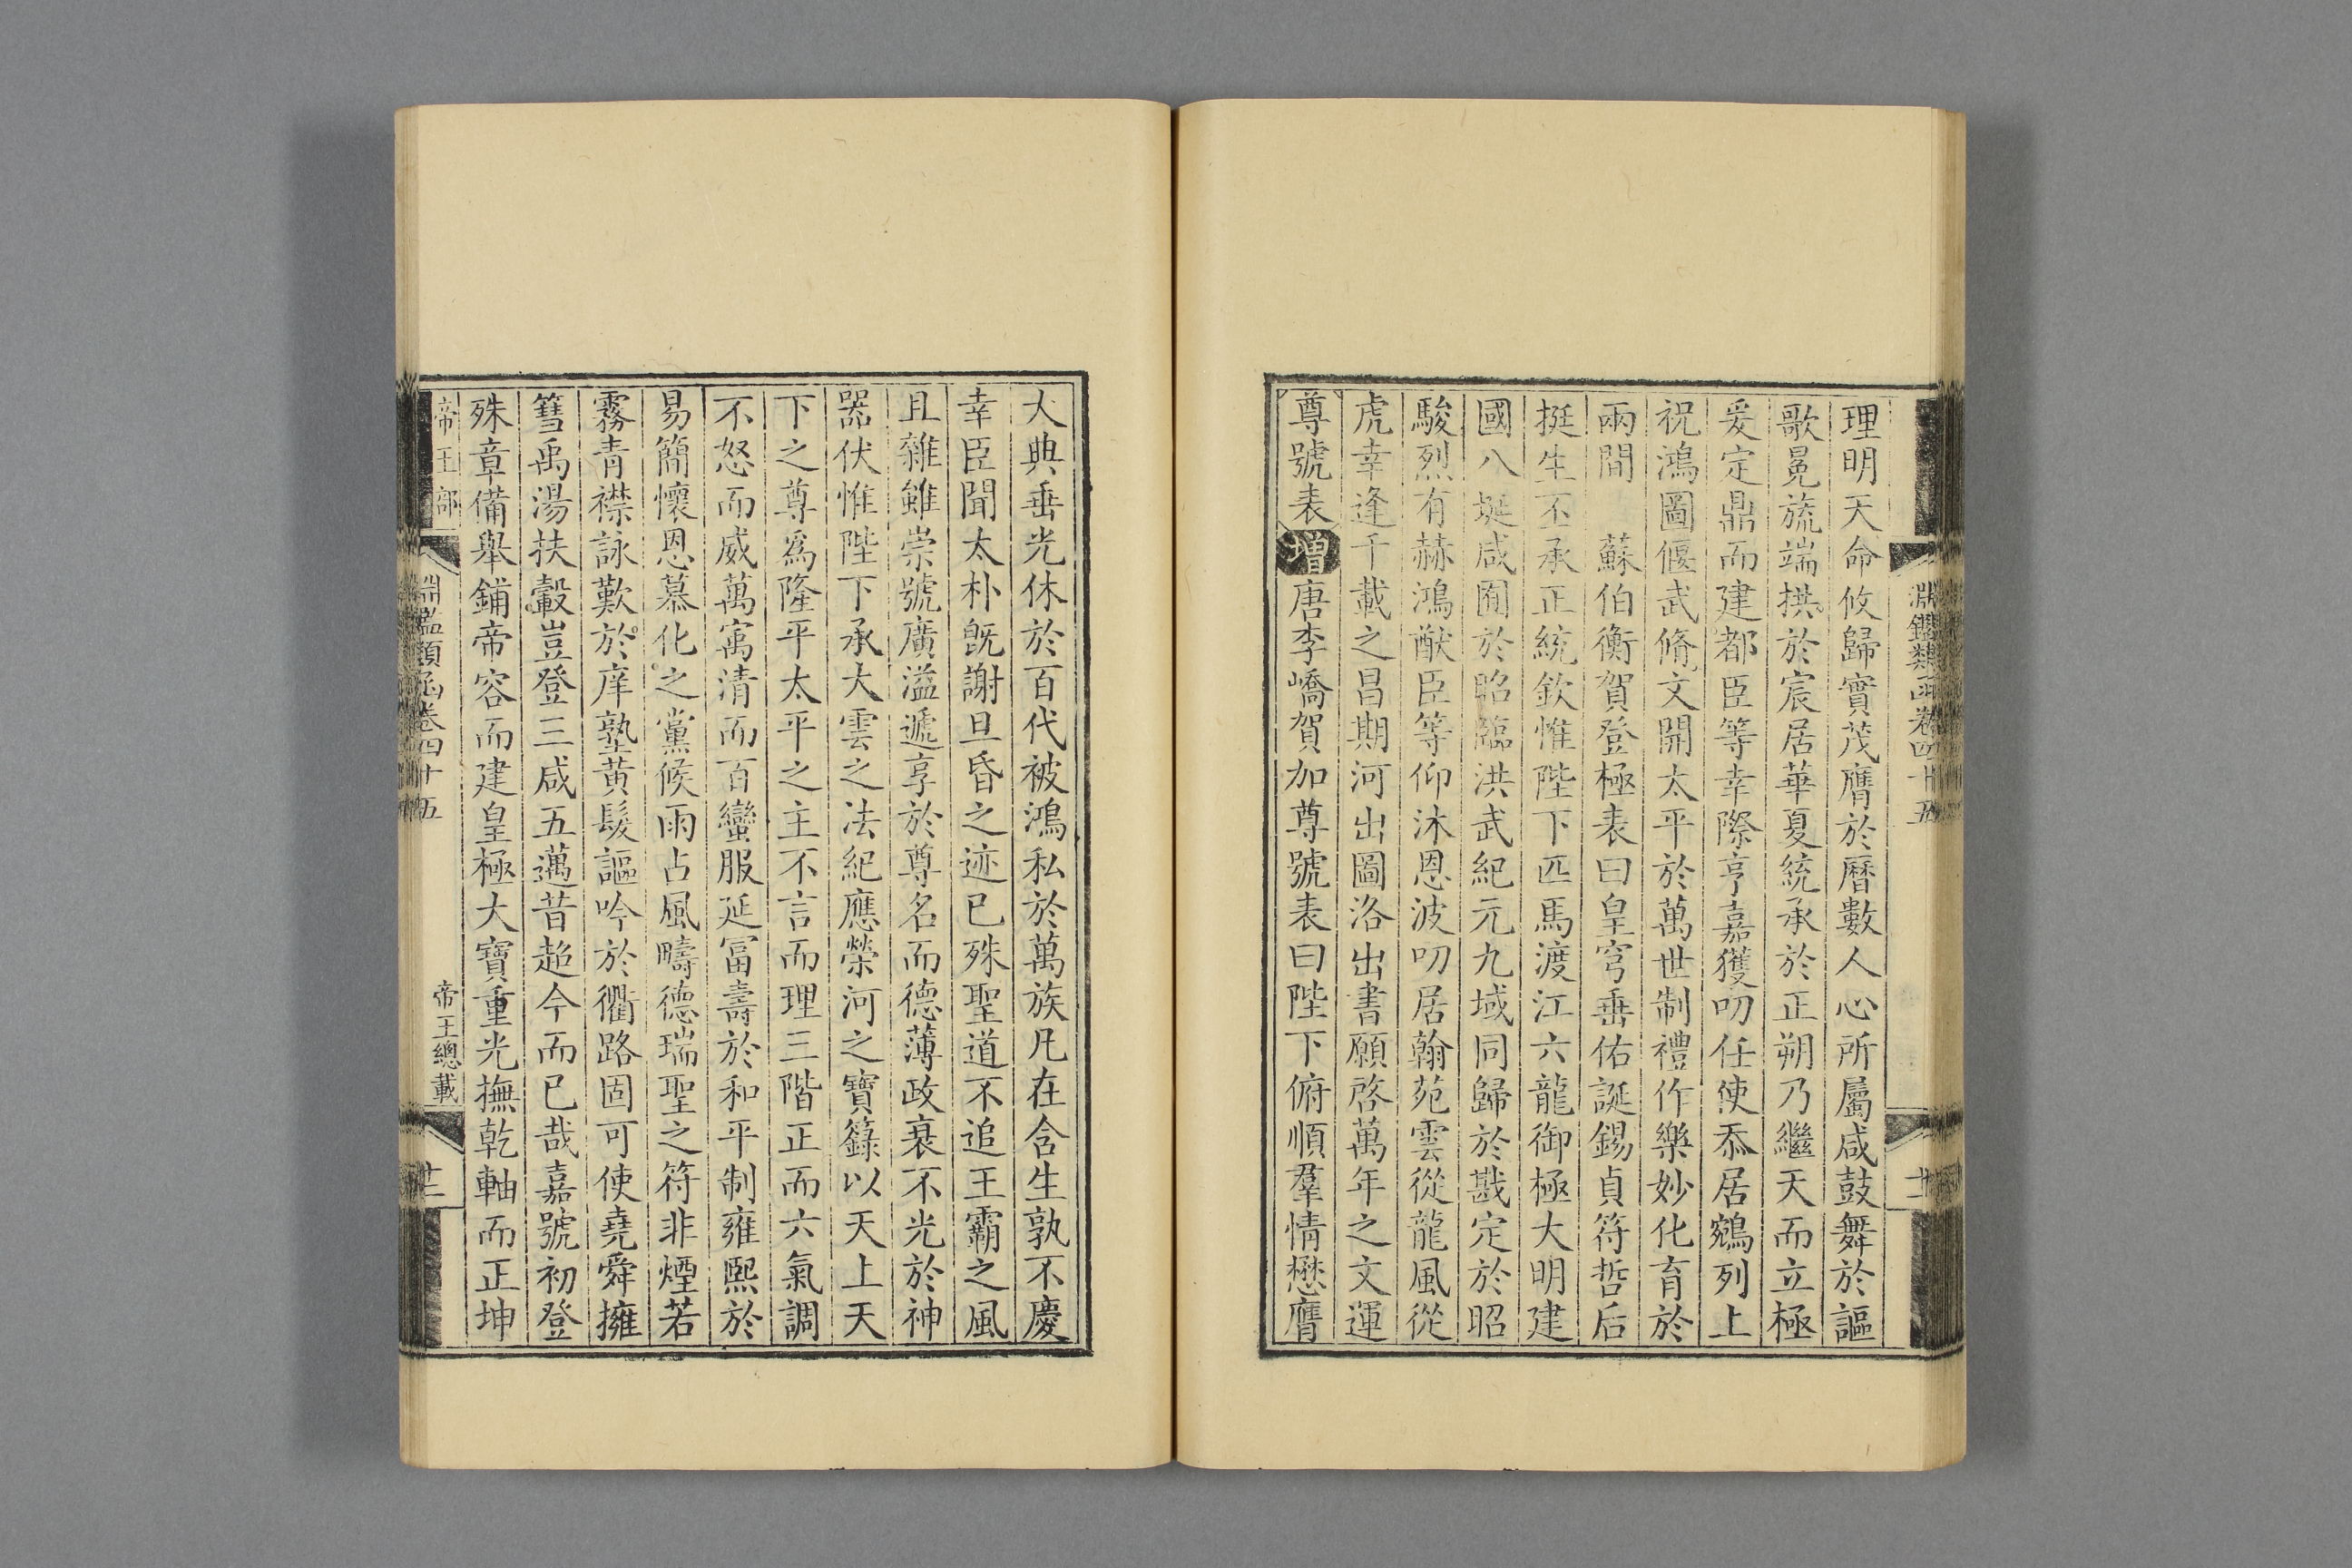 淵鑑類函卷四十五
廿二
理明天命攸歸實茂膺於曆數人心所屬咸鼓舞於謳
歌冕旒端拱於宸居華夏統承於正朔乃繼天而立極
爰定鼎而建都臣等幸際亨嘉獲叨任使忝居鵷列上
祝鴻圖偃武脩文開太平於萬世制禮作樂妙化育於
兩間　蘇伯衡賀登極表曰皇穹垂佑誕錫貞符哲后
挺生丕承正統欽惟陛下匹馬渡江六龍御極大明建
國八埏咸囿於昭臨洪武紀元九域同歸於戡定於昭
駿烈有赫鴻猷臣等仰沐恩波叨居翰苑雲從龍風從
虎幸逢千載之昌期河出圖洛出書願啓萬年之文運
尊號表增唐李嶠賀加尊號表曰陛下俯順羣情懋膺
大典垂光休於百代被鴻私於萬族凡在含生孰不慶
幸臣聞太朴旣謝旦昏之迹已殊聖道不追王霸之風
且雜雖崇號廣溢遞享於尊名而德薄政衰不光於神
器伏惟陛下承大雲之法紀應榮河之寶籙以天上天
下之尊爲隆平太平之主不言而理三階正而六氣調
不怒而威萬㝢清而百蠻服延富壽於和平制雍熙於
易簡懷恩慕化之黨候雨占風疇德瑞聖之符非煙若
霧青襟詠歎於庠塾黃髮謳吟於衢路固可使堯舜擁
篲禹湯扶轂豈登三咸五邁昔超今而已哉嘉號初登
殊章備舉鋪帝容而建皇極大寶重光撫乾軸而正坤
帝王部
淵鑑類函卷四十五
帝王總載
廿二